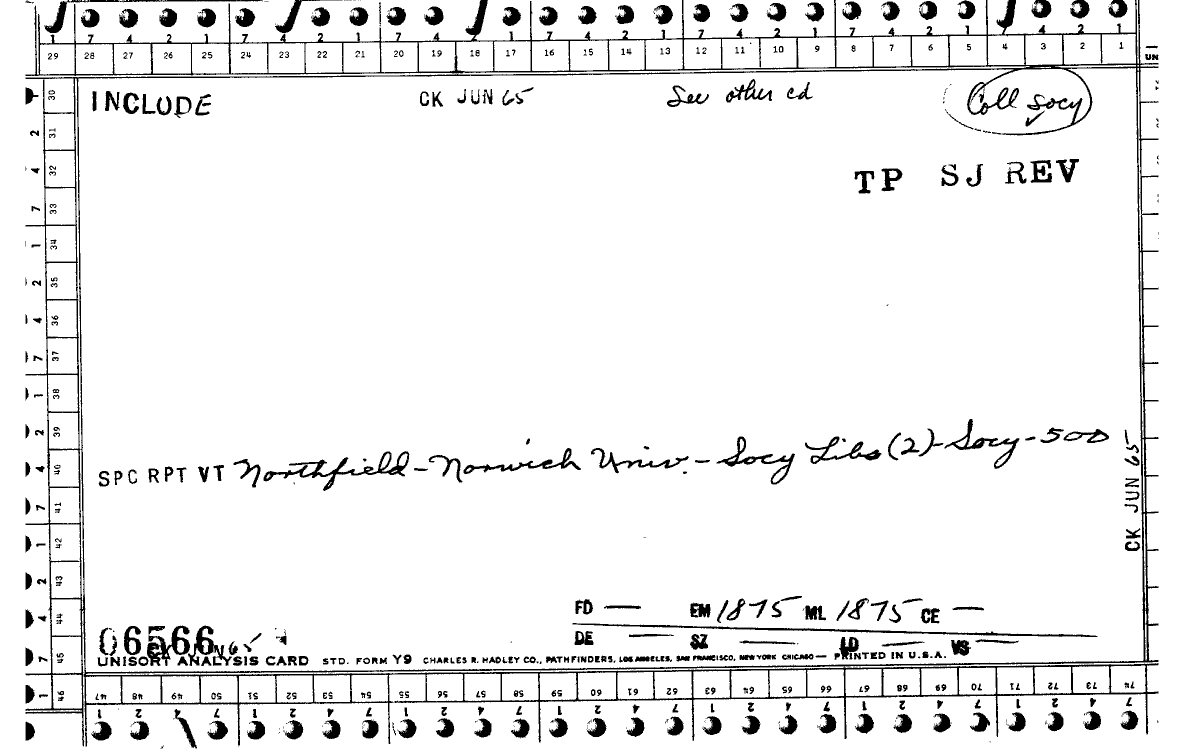 1 7 4 2 1 7 4 2 1 7 4 2 1 7 4 2 1 7 4 2 1 7 4 2 1 7 4 2 1
29 28 27 26 25 24 23 22 21 20 19 18 17 16 15 14 13 12 11 10 9 8 7 6 5 4 3 2 1
UN
INCLUDE CK JUN 65 See other cd Coll Socy
TP SJ REV
1 30
2 31
4 32
7 33
1 34
2 35
4 36
7 37
1 38
2 39
4 40
7 41
1 42
2 43
4 44
7 45
1 46
SPC RPT VT Northfield - Norwich Univ. - Socy Libs (2) - Socy - 500
CK JUN 65
FD — EM 1875 ML 1875 CE —
DE — SZ — LD — VS —
06566
CK JUN 65
UNISORT ANALYSIS CARD STD. FORM Y9 CHARLES R. HADLEY CO., PATHFINDERS, LOS ANGELES, SAN FRANCISCO, NEW YORK CHICAGO — PRINTED IN U.S.A.
47 48 49 50 51 52 53 54 55 56 57 58 59 60 61 62 63 64 65 66 67 68 69 70 71 72 73 74
1 2 4 7 1 2 4 7 1 2 4 7 1 2 4 7 1 2 4 7 1 2 4 7 1 2 4 7